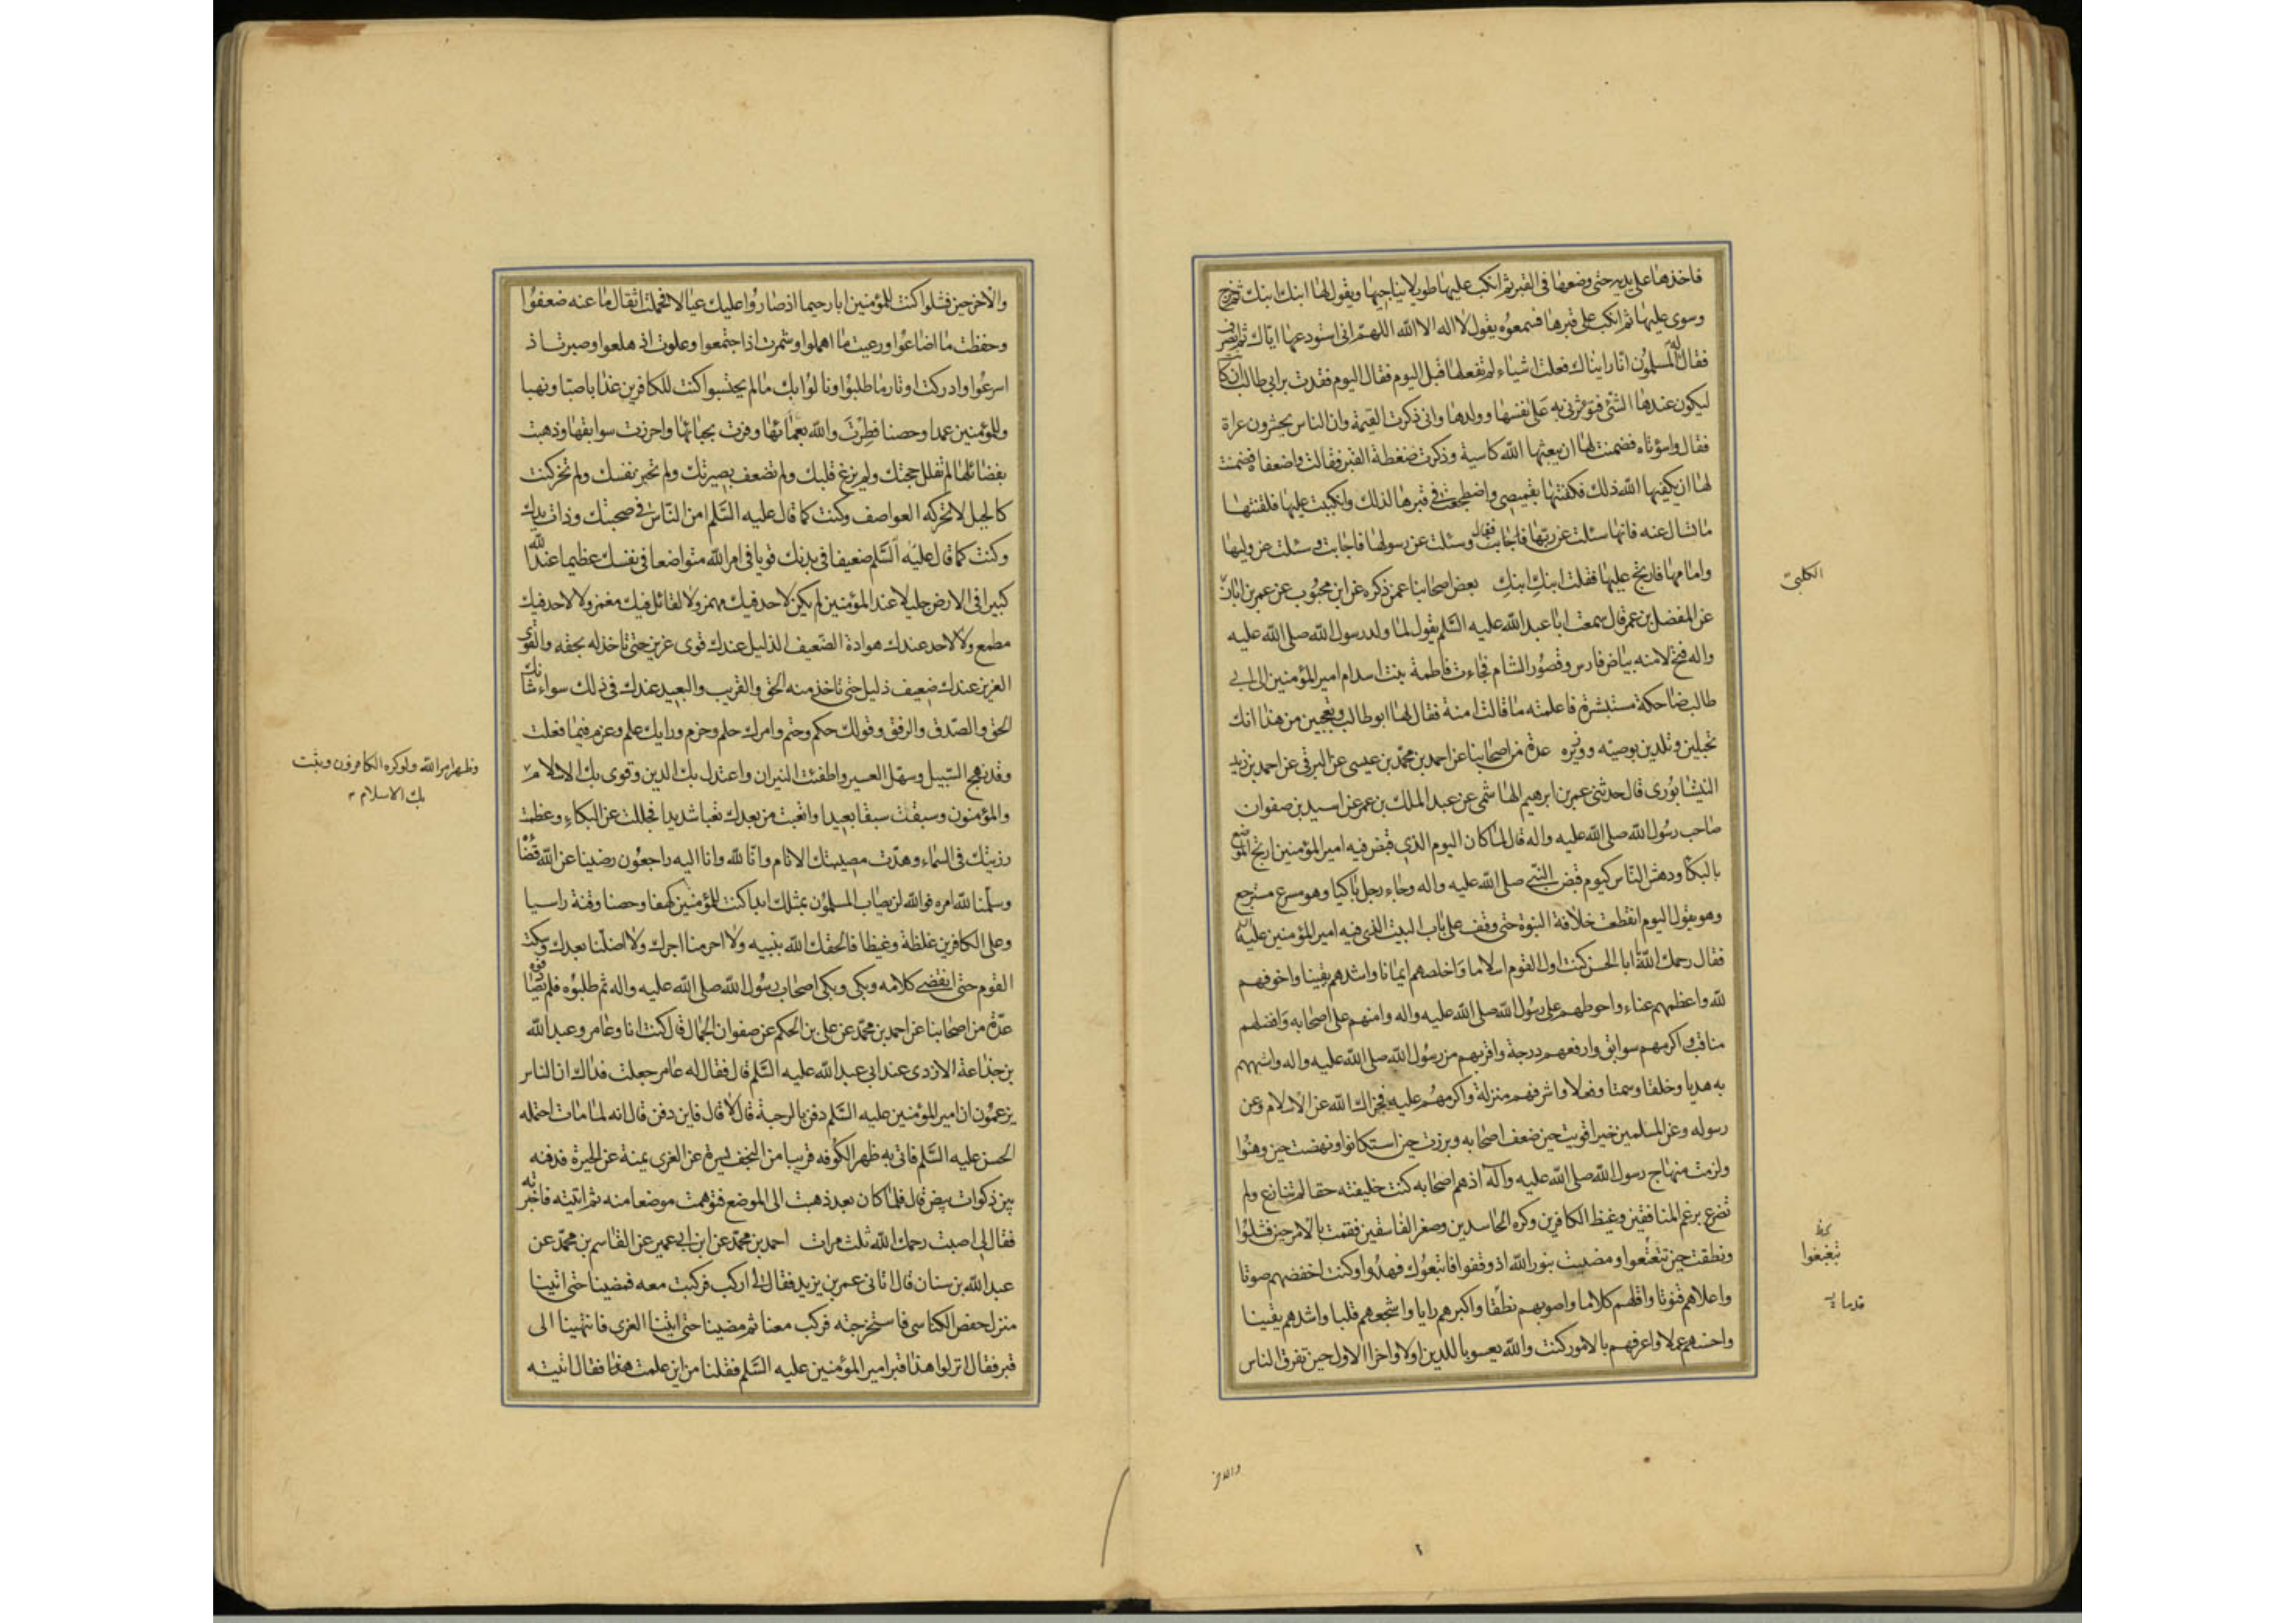 فاخذها على يديه حتى وضعها فى القبر ثم انكب عليها طويلا يناجيها ويقول لها ابنك ابنك ثم خرج
وسوى عليها ثم انكب على قبرها فسمعوه يقول لا اله الا الله اللهم انى استودعها اياك ثم انصرف
فقال له المسلمون انا رايناك فعلت اشياء لم تفعلها قبل اليوم فقال اليوم فقدت بر ابى طالب ان كا
ليكون عندها الشئ فتؤثرنى به على نفسها وولدها وانى ذكرت القيمة وان الناس يحشرون عراة
فقال واسوتاه فضمنت لها ان يبعثها الله كاسية وذكرت ضغطة القبر فقالت واضعفاه فضمنت
لها ان يكفيها الله ذلك فكفنتها بقميصى واضطجعت فى قبرها لذلك وانكببت عليها فلقنتها
ما تسال عنه فانها سئلت عن ربها فاجابت فقال وسئلت عن رسولها فاجابت وسئلت عن وليها
وامامها فارتج عليها فقلت ابنكِ ابنكِ بعض اصحابنا عمن ذكره عن ابن محبوب عن عمر بن ابان
الكلبىّ
عن المفضل بن عمر قال سمعت ابا عبد الله عليه السّلم يقول لما ولد رسول الله صلى الله عليه
واله فتح لامنه بياض فارس وقصور الشام فجاءت فاطمة بنت اسد ام امير المؤمنين الى ابى
طالب ضاحكة مستبشرة فاعلمته ما قالت امنة فقال لها ابو طالب وتعجبين من هذا انك
تحبلين وتلدين بوصيّه ووزيره عدة من اصحابنا عن احمد بن محمّد بن عيسى عن البرقى عن احمد بن زيد
النيشابورى قال حدثنى عمر بن ابرهيم الهاشمى عن عبد الملك بن عمر عن اسيد بن صفوان
صاحب رسول الله صلى الله عليه واله قال لما كان اليوم الذى قبض فيه امير المؤمنين ارتج الموضع
بالبكا ودهش النّاس كيوم قبض النّبى صلى الله عليه واله وجاء رجل باكيا وهو مسرع مسترجع
وهو يقول اليوم انقطعت خلافة النبوة حتى وقف على باب البيت الذى فيه امير المؤمنين عليه السلم
فقال رحمك الله يا ابا الحسن كنت اول القوم اسلاما واخلصهم ايمانا واشدهم يقينا واخوفهم
لله واعظمهم عناء واحوطهم على رسول الله صلى الله عليه واله وامنهم على اصحابه وافضلهم
مناقب واكرمهم سوابق وارفعهم درجة واقربهم من رسول الله صلى الله عليه واله واشبههم
به هديا وخلقا وسمتا وفعلا واشرفهم منزلة واكرمهم عليه فجزاك الله عن الاسلام وعن
رسوله وعن المسلمين خيرا قويت حين ضعف اصحابه وبرزت حين استكانوا ونهضت حين وهنوا
ولزمت منهاج رسول الله صلى الله عليه وآله اذ هم اصحابه كنت خليفته حقا لم تنازع ولم
تضرع برغم المنافقين وغيظ الكافرين وكره الحاسدين وصغر الفاسقين فقمت بالامر حين فشلوا
ونطقت حين تتعتعوا ومضيت بنور الله اذ وقفوا فاتبعوك فهدوا وكنت اخفضهم صوتا
واعلاهم قنوتا واقلهم كلاما واصوبهم نطقا واكبرهم رايا واشجعهم قلبا واشدهم يقينا
واحسنهم عملا واعرفهم بالامور كنت والله يعسوبا للدين اولا واخرا الاول حين تفرق الناس
والاخر
والاخر حين فشلوا كنت للمؤمنين ابا رحيما اذ صاروا عليك عيالا فحملت اثقال ما عنه ضعفوا
وحفظت ما اضاعوا ورعيت ما اهملوا وشمرت اذا اجتمعوا وعلوت اذ هلعوا وصبرت اذ
اسرعوا وادركت اوتار ما طلبوا ونالوا بك ما لم يحتسبوا كنت للكافرين عذابا صبّا ونهبا
وللمؤمنين عمدا وحصنا فطِرْتَ والله بغمائها وفزت بحبائها واحرزت سوابقها وذهبت
بفضائلها لم تفلل حجتك ولم يزغ قلبك ولم تضعف بصيرتك ولم تجبن نفسك ولم تخر كنت
كالجبل لا تحركه العواصف وكنت كما قال عليه السّلم امن النّاس فى صحبتك وذات يدك
وكنت كما قال عليه السّلم ضعيفا فى بدنك قويا فى امر الله متواضعا فى نفسك عظيما عند الله
كبيرا فى الارض جليلا عند المؤمنين لم يكن لاحد فيك مهمز ولا لقائل فيك مغمز ولا لاحد فيك
مطمع ولا لاحد عندك هوادة الضّعيف الذليل عندك قوى عزيز حتى تاخذ له بحقه والقوى
العزيز عندك ضعيف ذليل حتى تاخذ منه الحق والقريب والبعيد عندك فى ذلك سواء شانك
الحق والصّدق والرفق وقولك حكم وحتم وامرك حلم وحزم ورايك علم وعزم فيما فعلت
وقد نهج السّبيل وسهّل العسير واطفئت النيران واعتدل بك الدين وقوى بك الاسلام
وظهر امر الله ولو كره الكافرون وثبت
بك الاسلام
والمؤمنون وسبقت سبقا بعيدا واتعبت من بعدك تعبا شديدا فجللت عن البكاء وعظمت
رزيتك فى السّماء وهدّت مصيبتك الانام وانّا لله وانا اليه راجعون رضينا عن الله قضاؤه
وسلّمنا لله امره فوالله لن يصاب المسلمون بمثلك ابدا كنت للمؤمنين كهفا وحصنا وقنة راسيا
وعلى الكافرين غلظة وغيظا فالحقك الله بنبيه ولا احرمنا اجرك ولا اضلّنا بعدك وسكت
القوم حتى انقضى كلامه وبكى وبكى اصحاب رسول الله صلى الله عليه واله ثم طلبوه فلم يصادفوه
عدّة من اصحابنا عن احمد بن محمّد عن على بن الحكم عن صفوان الجمال قال كنت انا وعامر وعبد الله
بن جذاعة الازدى عند ابى عبد الله عليه السّلم قال فقال له عامر جعلت فداك ان الناس
يزعمون ان امير المؤمنين عليه السّلم دفن بالرحبة قال لا قال فاين دفن قال انه لما مات احتمله
الحسن عليه السّلم فاتى به ظهر الكوفه قريبا من النجف يسرة عن الغرى يمنة عن الحيرة فدفنه
بين ذكوات بيض قال فلما كان بعد ذهبت الى الموضع فتوهمت موضعا منه ثم اتيته فاخبرته
فقال لى اصبت رحمك الله ثلث مرات احمد بن محمّد عن ابن ابى عمير عن القاسم بن محمّد عن
عبد الله بن سنان قال اتانى عمر بن يزيد فقال لى اركب فركبت معه فمضينا حتى اتينا
منزل حفص الكناسى فاستخرجته فركب معنا ثم مضينا حتى اتينا الغرى فانتهينا الى
قبر فقال انزلوا هذا قبر امير المؤمنين عليه السّلم فقلنا من اين علمت هذا فقال اتيته